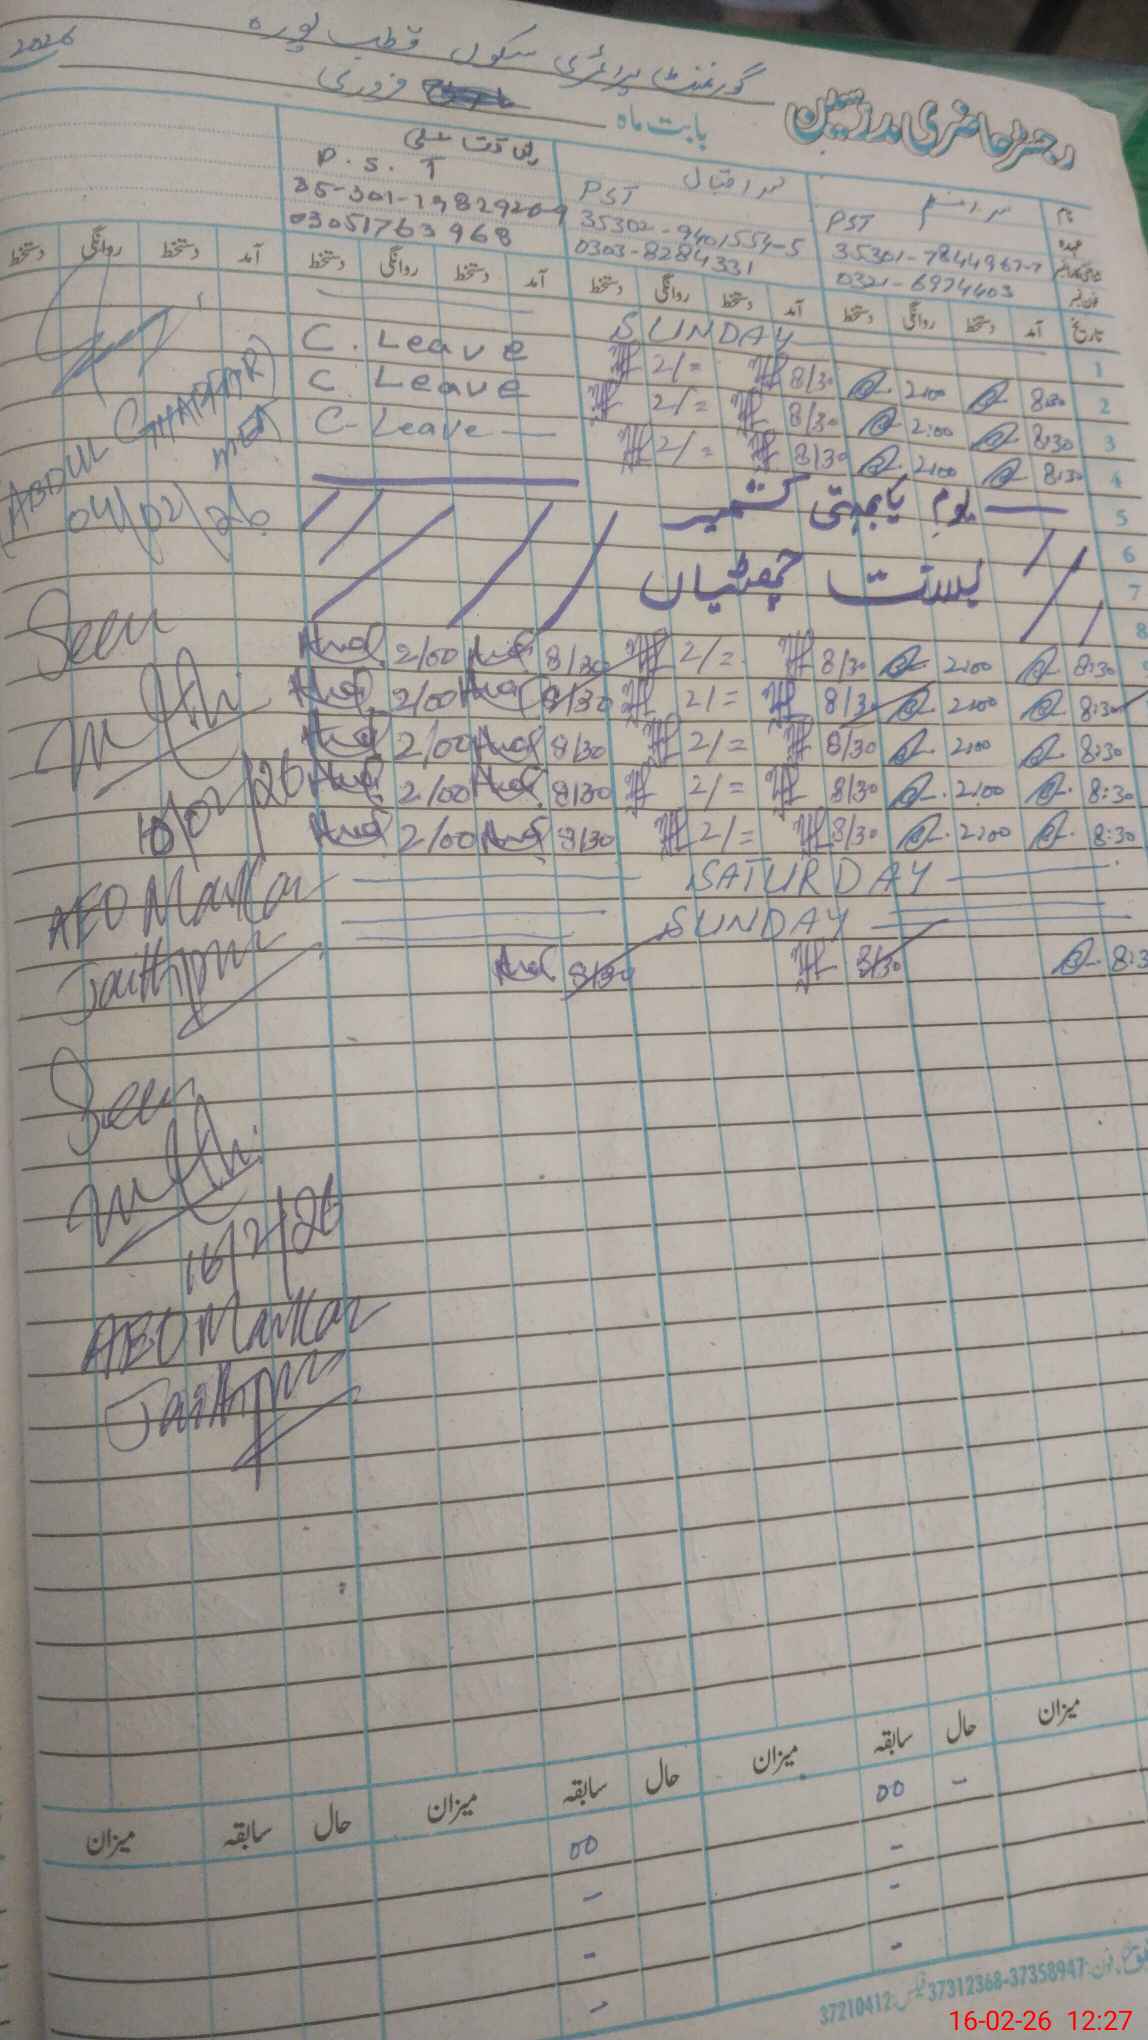 رجسٹر حاضری مدرسین
گورنمنٹ پرائمری سکول قطب پورہ
2026
بابت ماہ فروری
نام
عہدہ
PST
35302-9401554-5
0303-8284331
P.S.T
03051763968
PST
0321-6974403
تاریخ آمد دستخط روانگی دستخط آمد دستخط روانگی دستخط آمد دستخط روانگی دستخط آمد دستخط روانگی دستخط
1 SUNDAY
2 8:30 2:00 8/30 2/= C. Leave
3 8:30 2:00 8/30 2/= C. Leave
4 8:30 2:00 8/30 2/= C-Leave
5 یوم یکجہتی کشمیر
6
7 بسنت چھٹیاں
8
8:30 2:00 8/30 2/= 8/30 2/00
8:30 2:00 8/30 2/= 8/30 2/00
8:30 2:00 8/30 2/= 8/30 2/00
8:30 2:00 8/30 2/= 8/30 2/00
8:30 2:00 8/30 2/= 8/30 2/00
SATURDAY
SUNDAY
8:3 8/30 8/30
(ABDUL GHAFFAR)
MEA
04/02/26
Seen
10/02/26
AEO Markaz
Jaithpur
Seen
16/2/26
AEO Markaz
Jaithpur
میزان حال سابقہ میزان حال سابقہ میزان حال سابقہ میزان
00 -
00 -
- -
- -
-
37312368-37358947
37210412
16-02-26 12:27